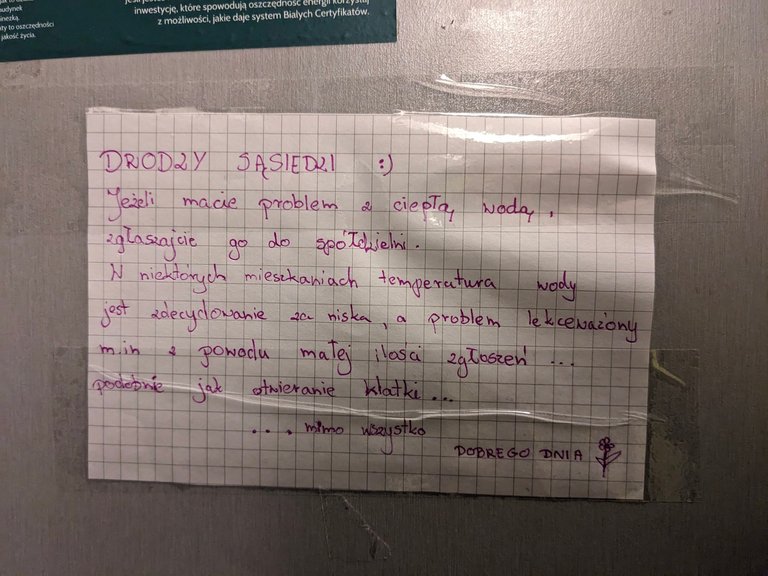 budynek
ty to oszczędności
jakość życia.
inwestycje, które spowodują oszczędność energii korzystaj
z możliwości, jakie daje system Białych Certyfikatów.
DRODZY SĄSIEDZI :)
Jeżeli macie problem z ciepłą wodą,
zgłaszajcie go do spółdzielni.
W niektórych mieszkaniach temperatura wody
jest zdecydowanie za niska, a problem lekceważony
m.in z powodu małej ilości zgłoszeń ...
podobnie jak otwieranie klatki ...
.... mimo wszystko
DOBREGO DNIA